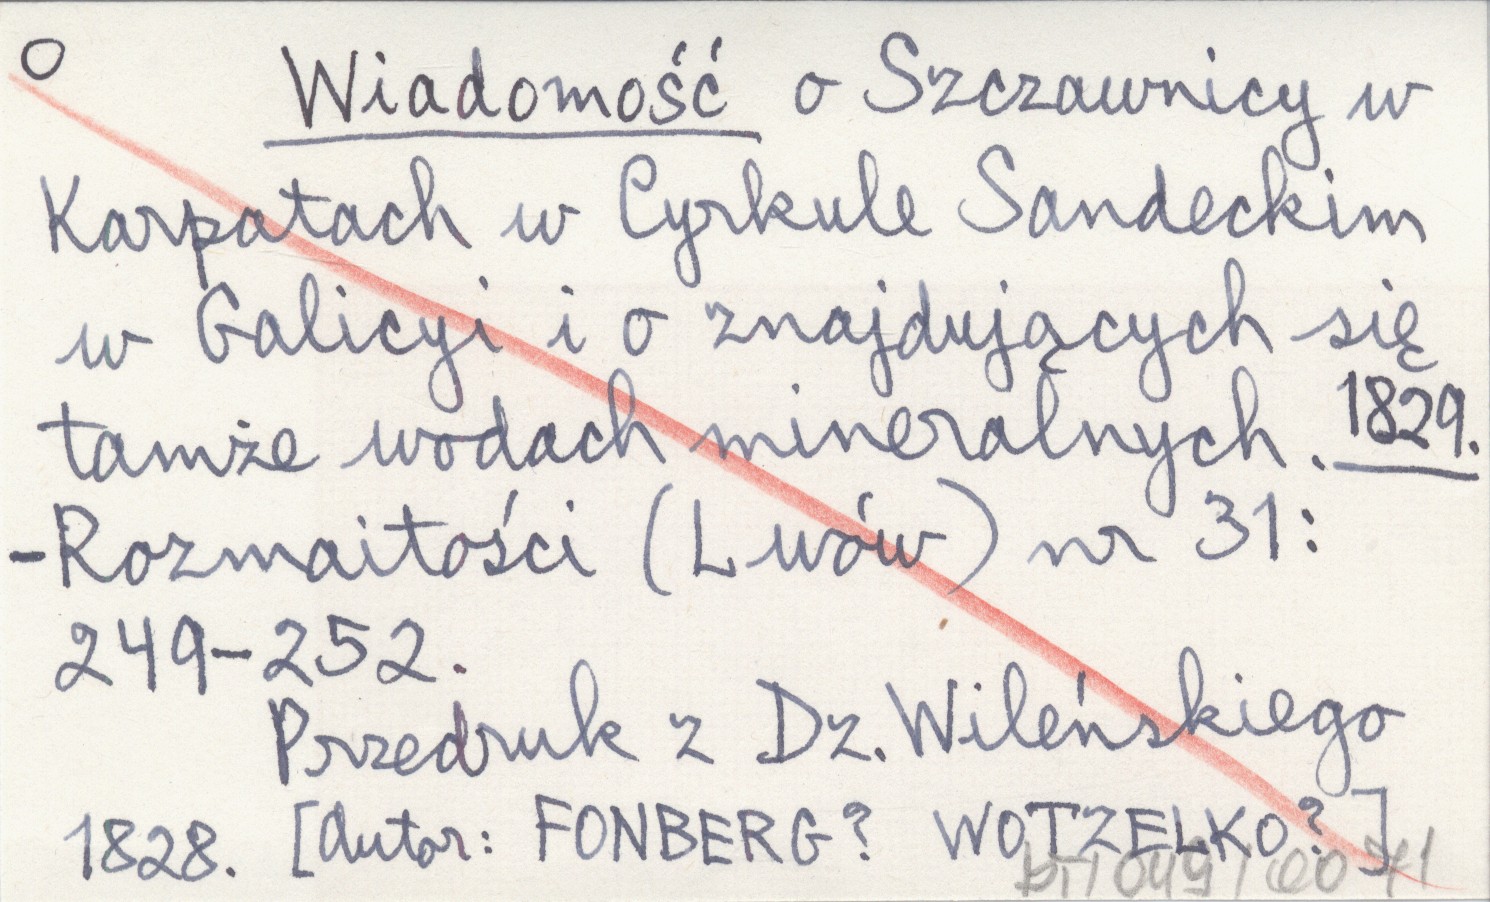 O
Wiadomość o Szczawnicy w
Karpatach w Cyrkule Sandeckim
w Galicyi i o znajdujących się
tamże wodach mineralnych. 1829.
-Rozmaitości (Lwów) nr 31:
249-252.
Przedruk z Dz. Wileńskiego
1828. [Autor: FONBERG? WOTZELKO?]